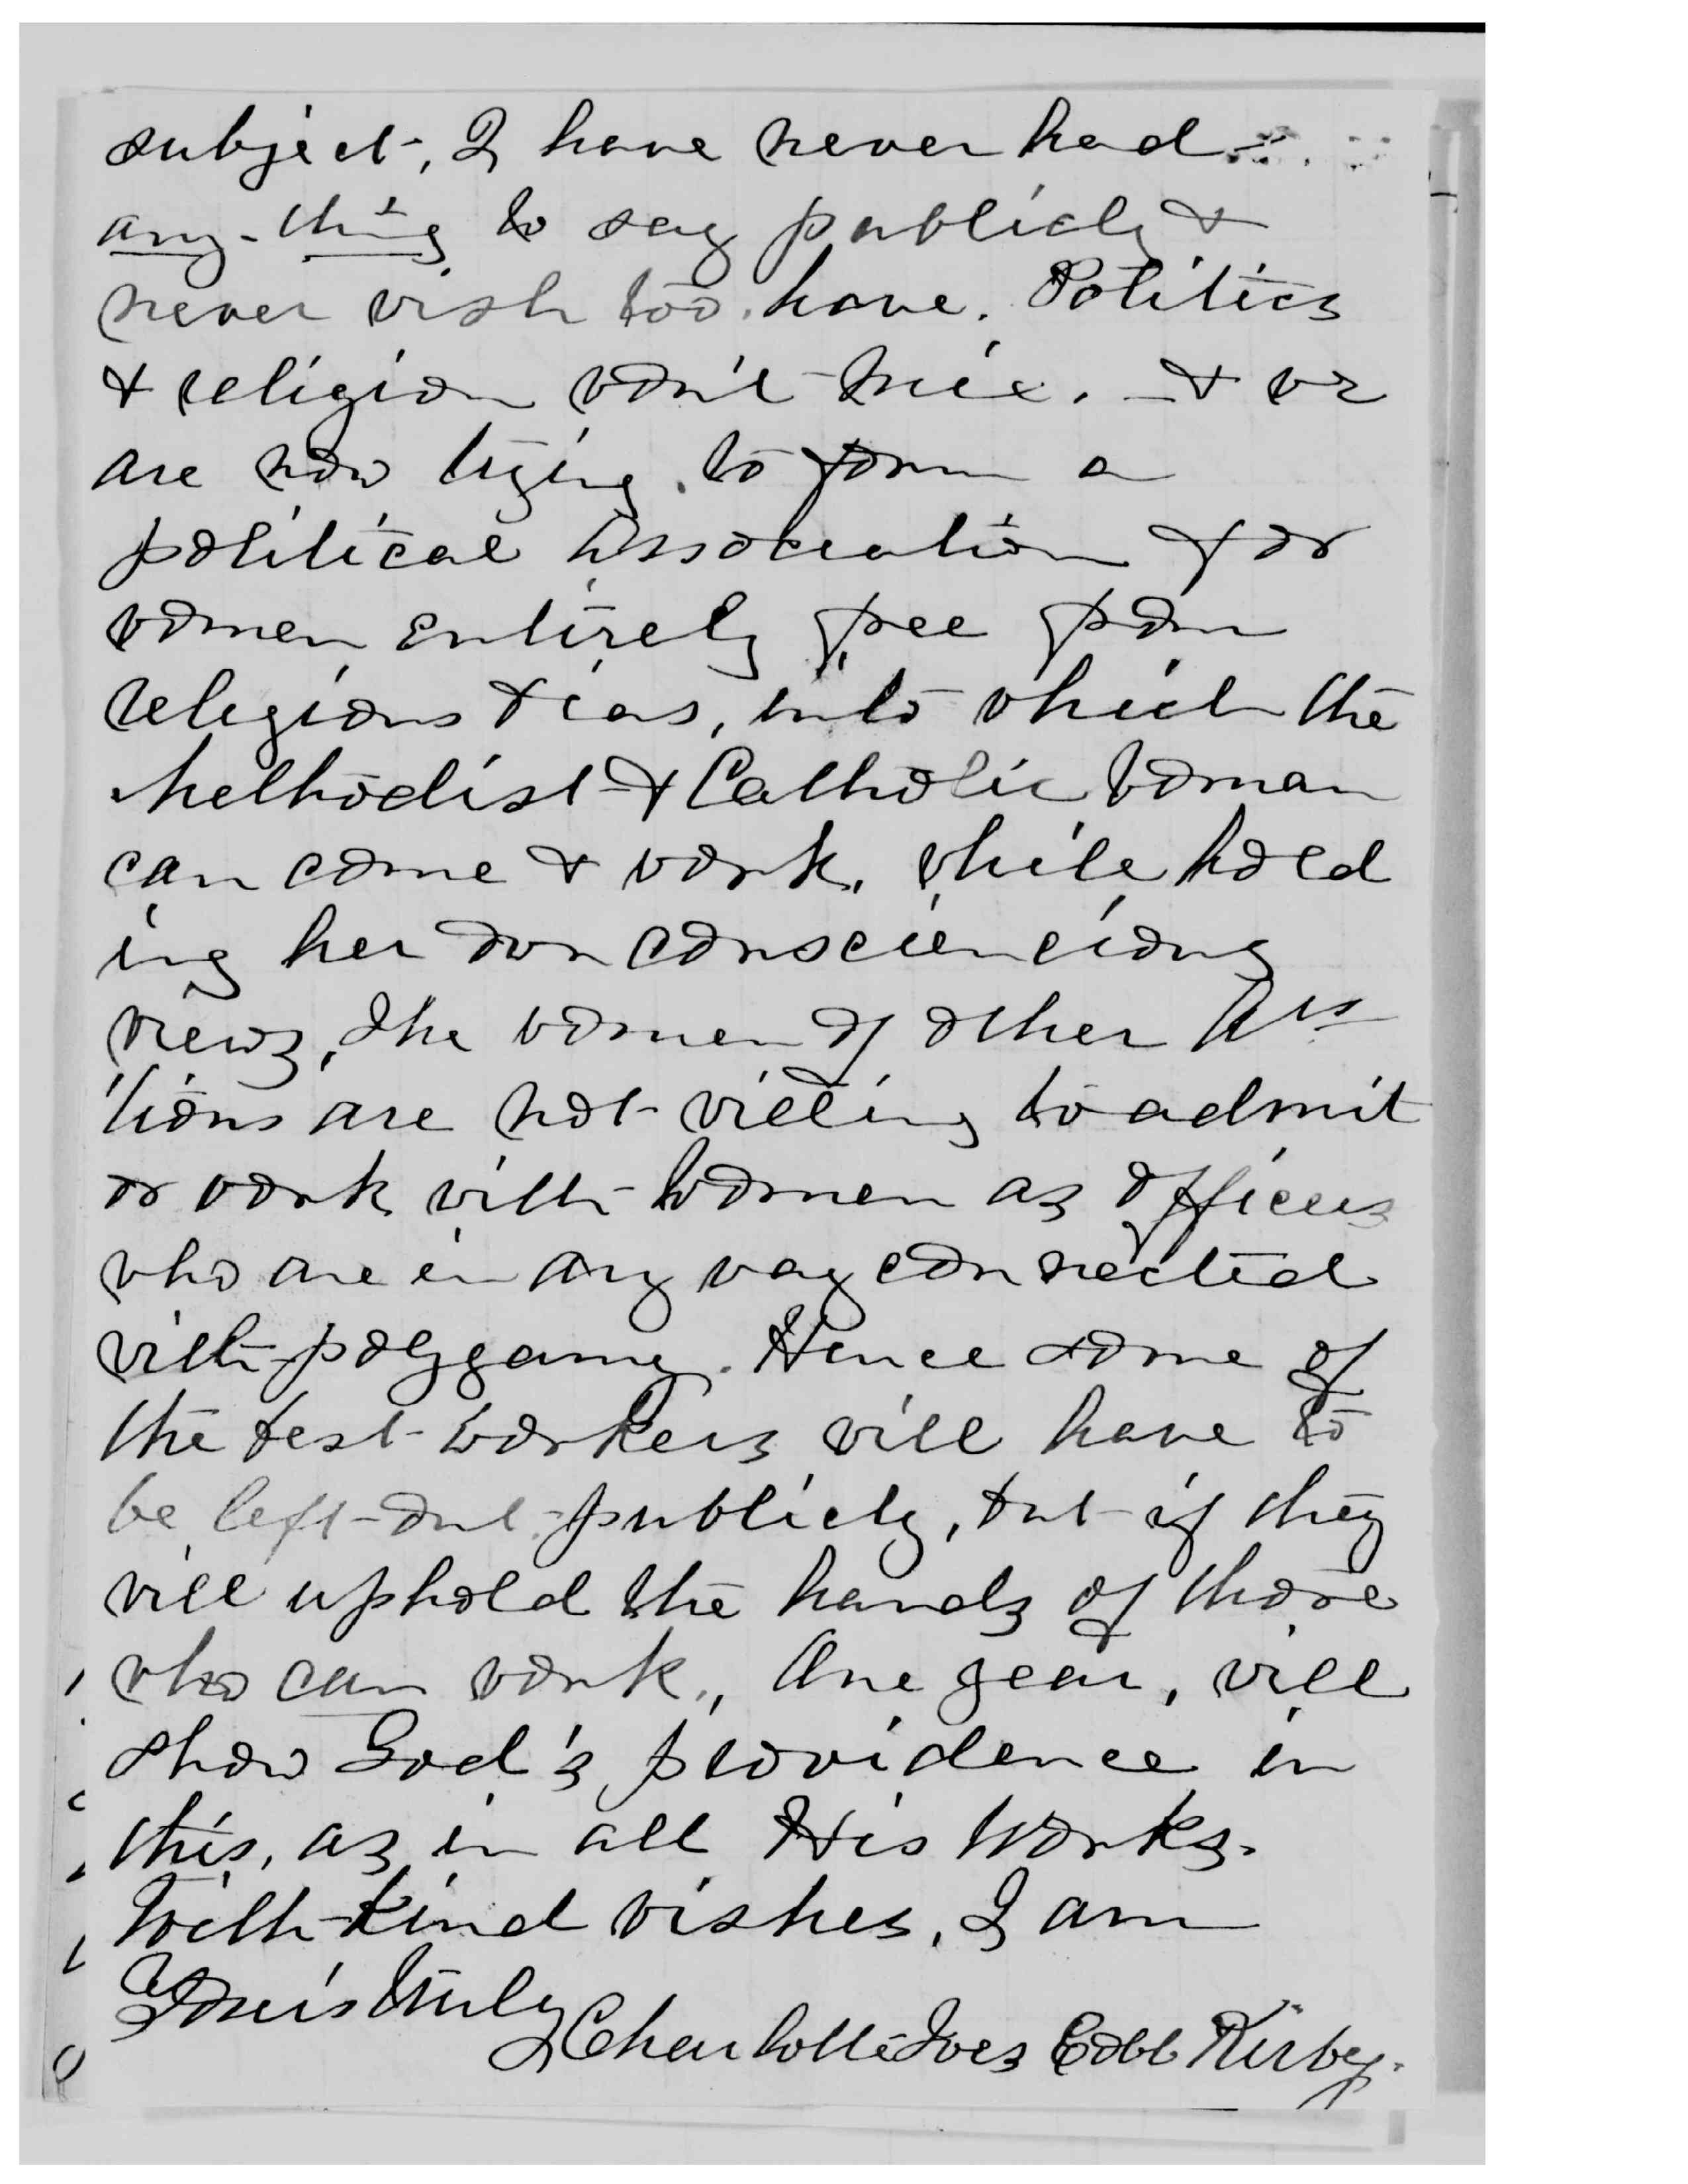 subject, I have never had
any-thing to say publicly &
never wish too have. Politics
& religion won't mix. - & we
are now trying to form a
political Association for
women entirely free from
religious bias, into which the
Methodist & Catholic Woman
can come & work, while hold
ing her own consciencious
views, The women of other Ass
'tions are not willing to admit
or work with Women as officers
who are in any way connected
with polygamy. Hence some of
the best workers will have to
be left out publicly, but if they
will uphold the hands of those
who can work, One year, will
show God's providence in
this, as in all His Works.
With kind wishes, I am
Yours truly
Charlotte Ives Cobb Kirby.